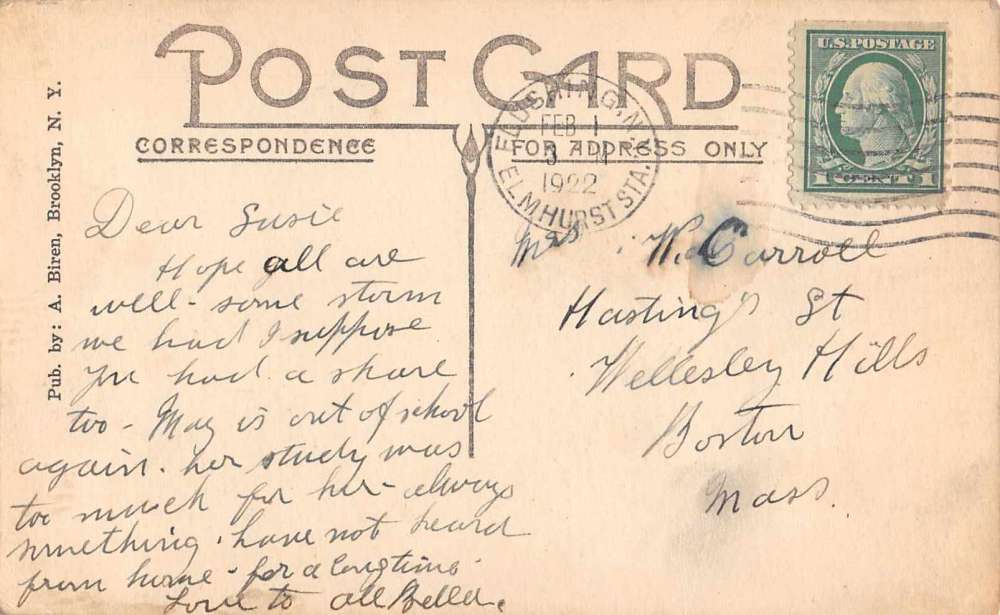 POST CARD
CORRESPONDENCE
FOR ADDRESS ONLY
Pub. by: A. Biren, Brooklyn, N. Y.
U.S. POSTAGE
1 CENT 1
FLUSHING, N.Y.
FEB 1
3
1922
ELMHURST STA.
Dear Susie
Hope all are
well - some storm
we had I suppose
you had a share
too - May is out of school
again. her study was
too much for her - always
something. have not heard
from home - for a long time.
Love to all Bella.
Mrs. W. Carroll
Hastings St
Wellesley Hills
Boston
Mass.